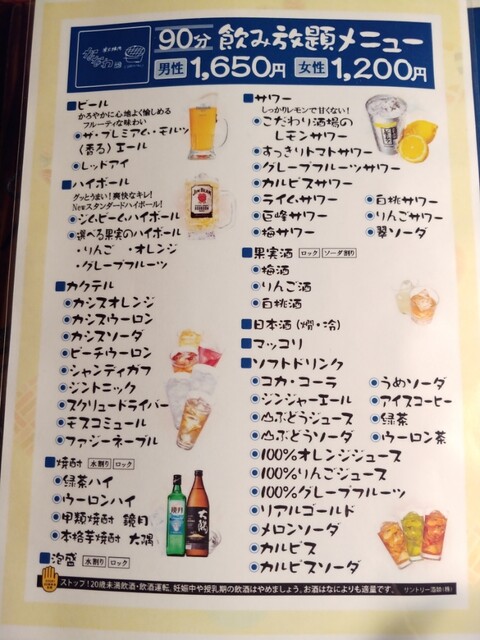 90分 飲み放題メニュー
男性 1,650円 女性 1,200円
ビール
かろやかに心地よく愉しめる
フルーティな味わい
ザ・プレミアム・モルツ
〈香る〉エール
レッドアイ
ハイボール
グッとうまい!爽快なキレ!
Newスタンダードハイボール!
ジムビームハイボール
選べる果実のハイボール
・りんご ・オレンジ
・グレープフルーツ
カクテル
カシスオレンジ
カシスウーロン
カシスソーダ
ピーチウーロン
シャンディガフ
ジントニック
スクリュードライバー
モスコミュール
ファジーネーブル
焼酎 水割り ロック
緑茶ハイ
ウーロンハイ
甲類焼酎 鏡月
本格芋焼酎 大隅
泡盛 水割り ロック
サワー
しっかりレモンで甘くない!
こだわり酒場の
レモンサワー
すっきりトマトサワー
グレープフルーツサワー
カルピスサワー
ライムサワー
巨峰サワー
梅サワー
白桃サワー
りんごサワー
翠ソーダ
果実酒 ロック ソーダ割り
梅酒
りんご酒
白桃酒
日本酒(燗・冷)
マッコリ
ソフトドリンク
コカ・コーラ
ジンジャーエール
山ぶどうジュース
山ぶどうソーダ
100%オレンジジュース
100%りんごジュース
100%グレープフルーツ
リアルゴールド
メロンソーダ
カルピス
カルピスソーダ
うめソーダ
アイスコーヒー
緑茶
ウーロン茶
ストップ!20歳未満飲酒・飲酒運転。妊娠中や授乳期の飲酒はやめましょう。お酒はなによりも適量です。 サントリー酒類(株)